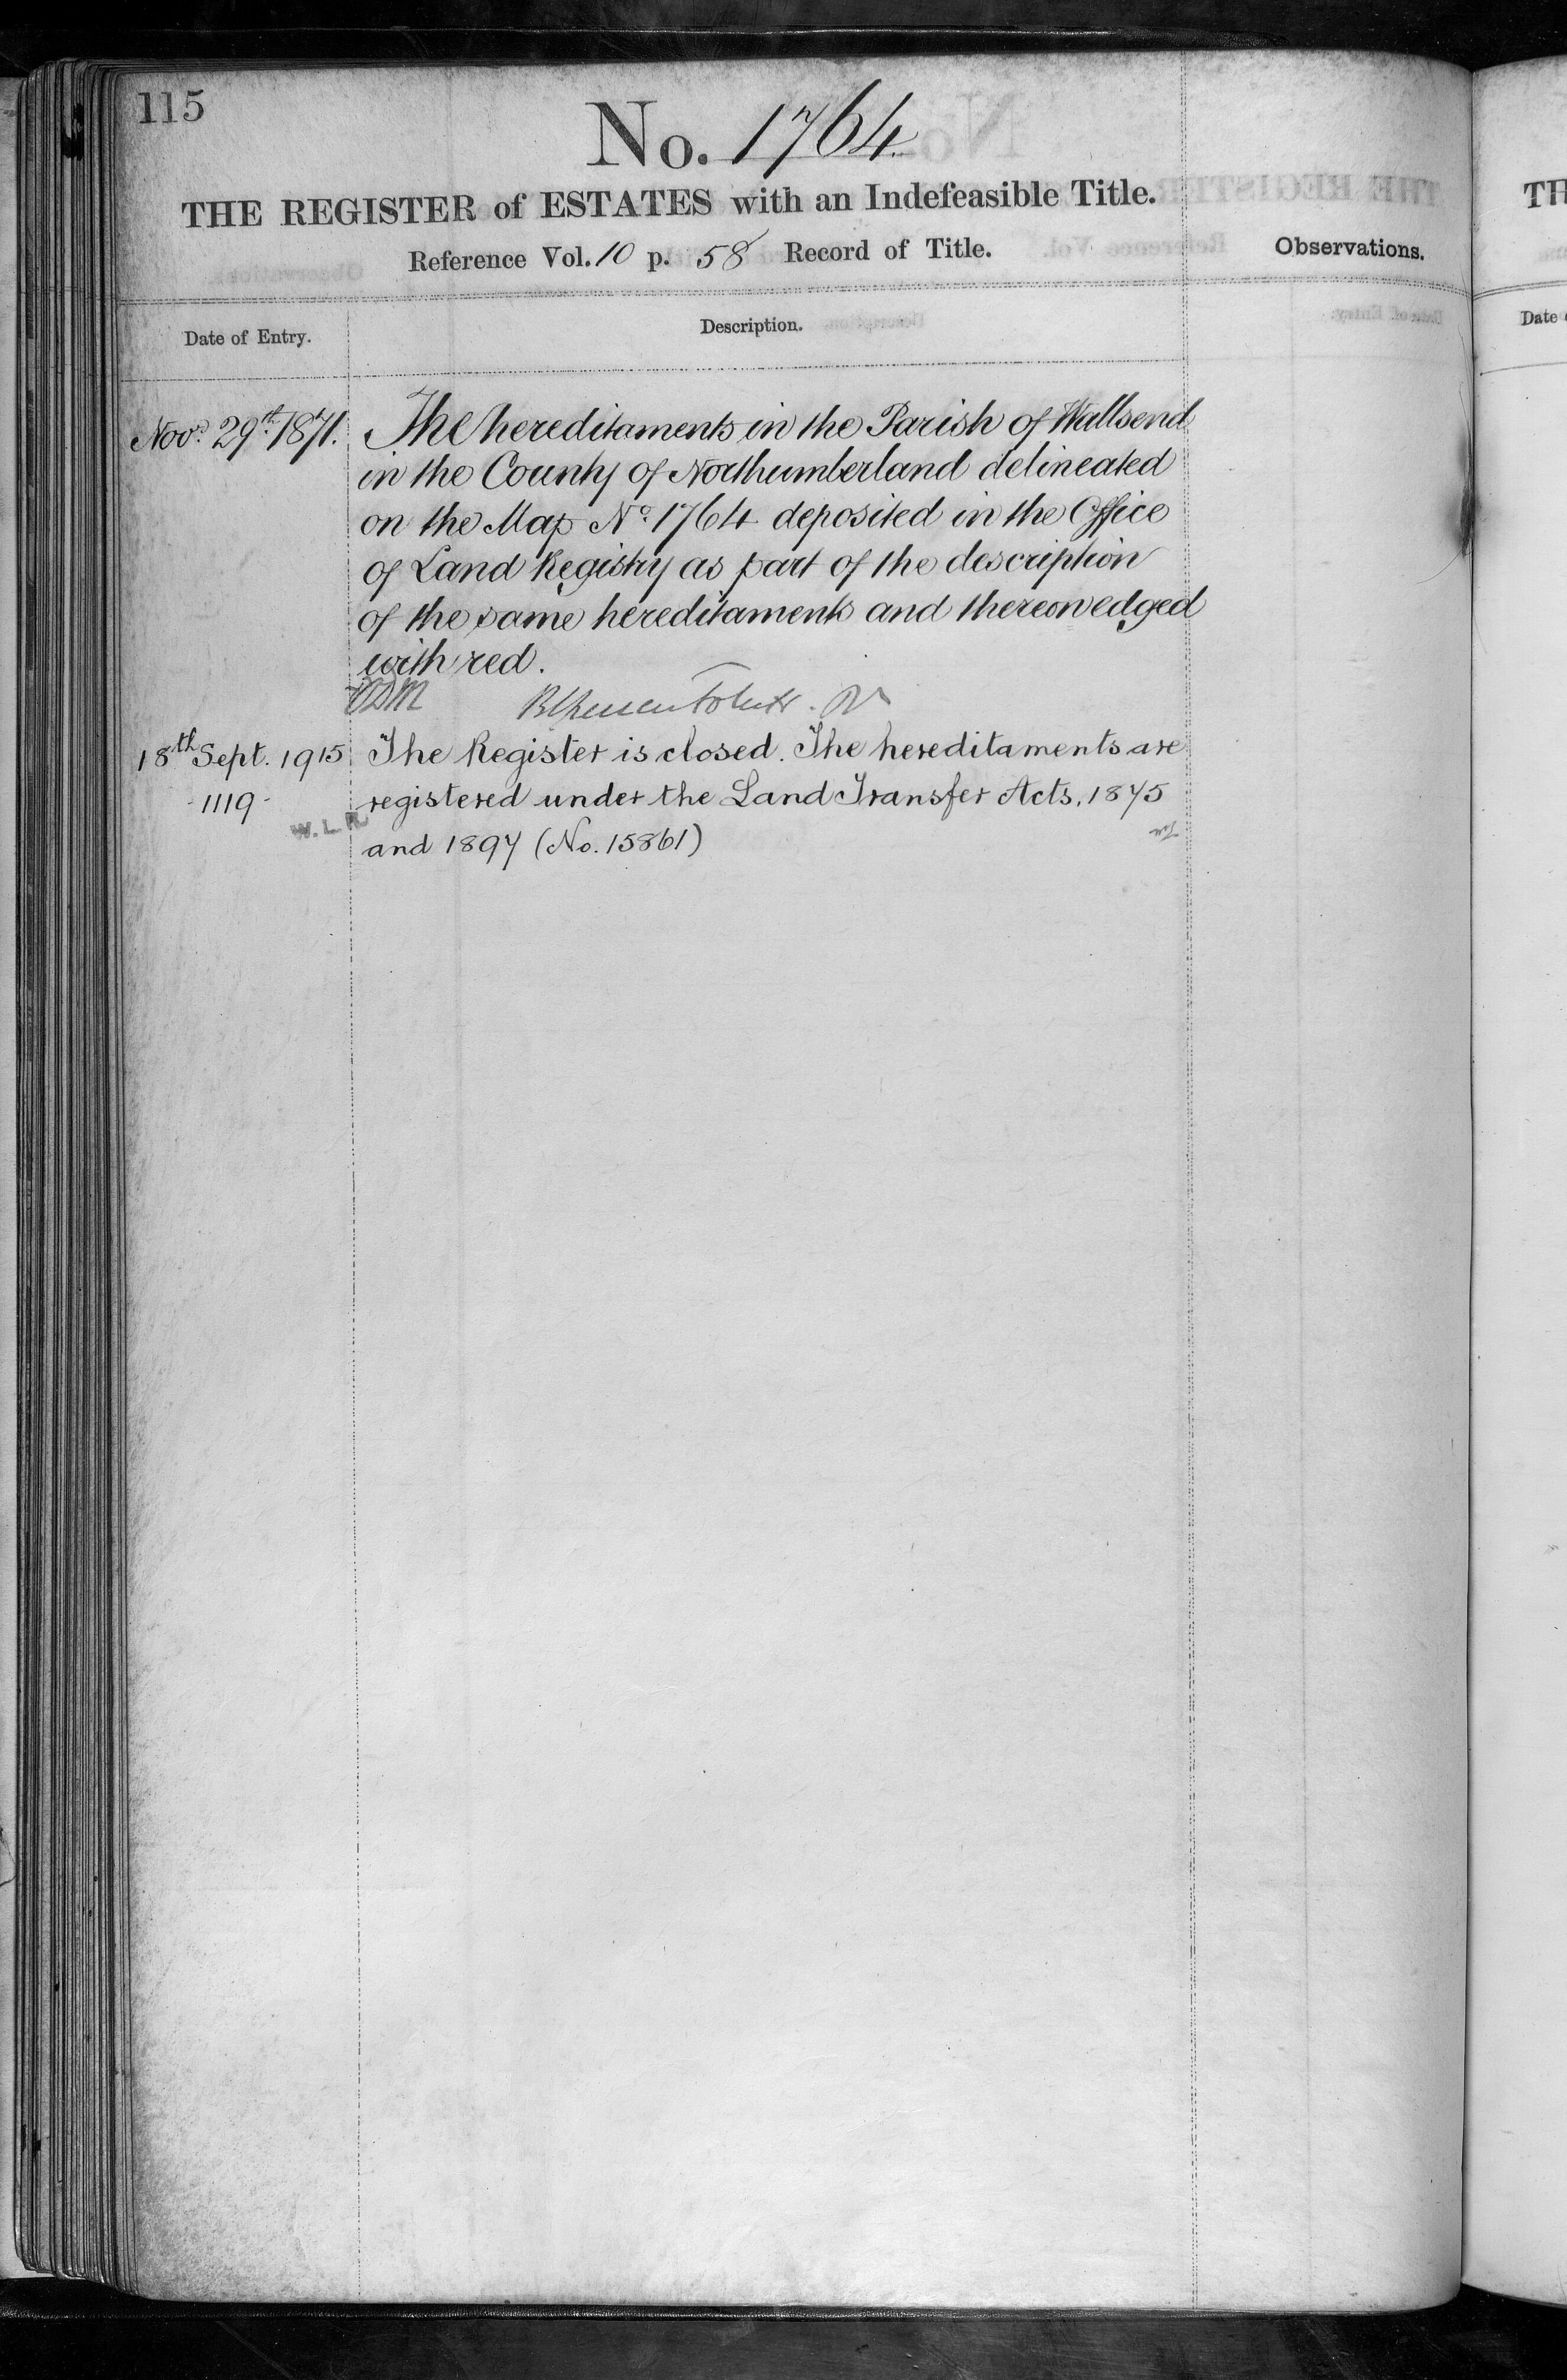 115
No. 1764.
THE REGISTER of ESTATES with an Indefeasible Title.
Reference Vol. 10 p. 58 Record of Title.
Observations.
Date of Entry.
Description.
Novr. 29th 1871.
The hereditaments in the Parish of Wallsend
in the County of Northumberland delineated
on the Map No. 1764 deposited in the Office
of Land Registry as part of the description
of the same hereditaments and thereon edged
with red.
18th Sept. 1915
The Register is closed. The hereditaments are
-1119-
registered under the Land Transfer Acts, 1875
W. L. R.
and 1897 (No. 15861)
TH
Date